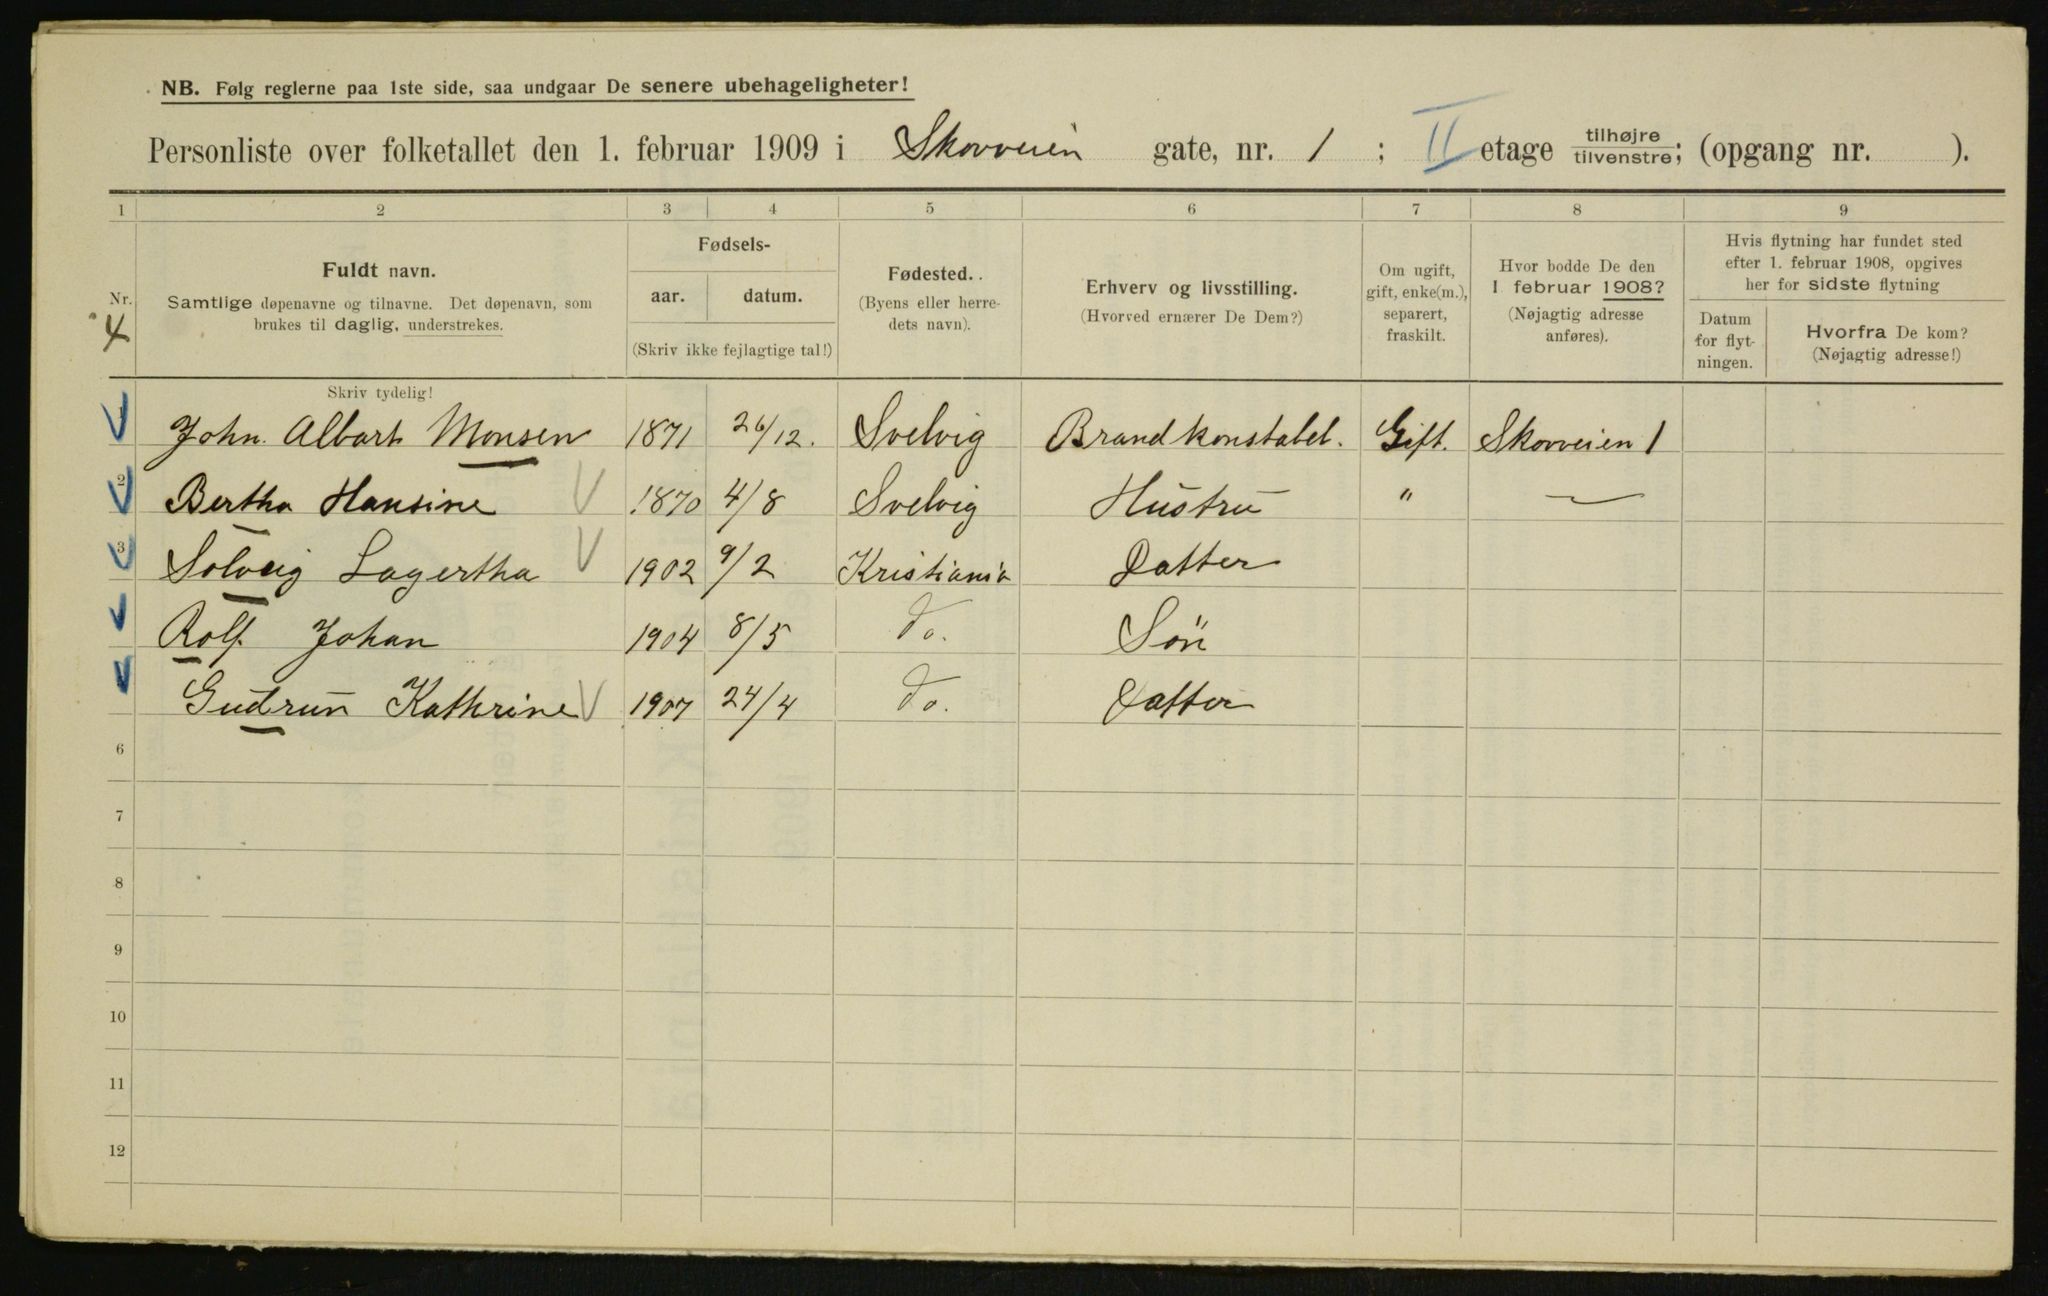 NB. Følg reglerne paa 1ste side, saa undgaar De senere ubehageligheter!
Personliste over folketallet den 1. februar 1909 i Skovveien gate, nr. 1 ; II etage tilhøjre tilvenstre; (opgang nr. ).
1 2 3 4 5 6 7 8 9
Nr. 4
Fuldt navn.
Samtlige døpenavne og tilnavne. Det døpenavn, som
brukes til daglig, understrekes.
Fødsels-
aar. datum.
(Skriv ikke fejlagtige tal!)
Fødested..
(Byens eller herre-
dets navn).
Erhverv og livsstilling.
(Hvorved ernærer De Dem?)
Om ugift,
gift, enke(m.),
separert,
fraskilt.
Hvor bodde De den
1 februar 1908?
(Nøjagtig adresse
anføres).
Hvis flytning har fundet sted
efter 1. februar 1908, opgives
her for sidste flytning
Datum
for flyt-
ningen.
Hvorfra De kom?
(Nøjagtig adresse!)
Skriv tydelig!
1 John Albart Monsen 1871 26/12. Svelvig Brandkonstabel. Gift. Skovveien 1
2 Bertha Hansine 1870 4/8 Svelvig Hustru " —
3 Solveig Lagertha 1902 9/2 Kristiania Datter
Rolf Johan 1904 8/5 do. Søn
Gudrun Kathrine 1907 24/4 do. Datter
6
7
8
9
10
11
12